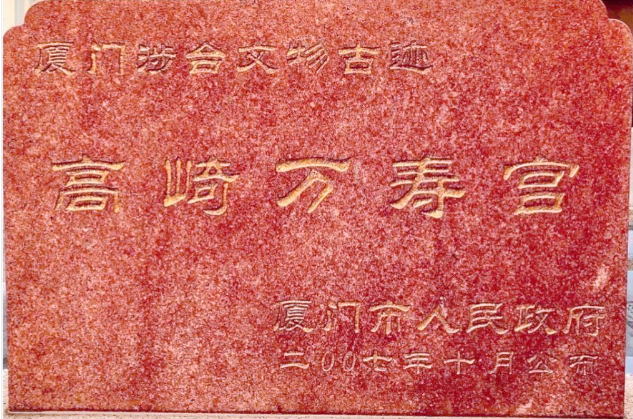 厦门涉台文物古迹
高崎万寿宫
厦门市人民政府
二00七年十月公布